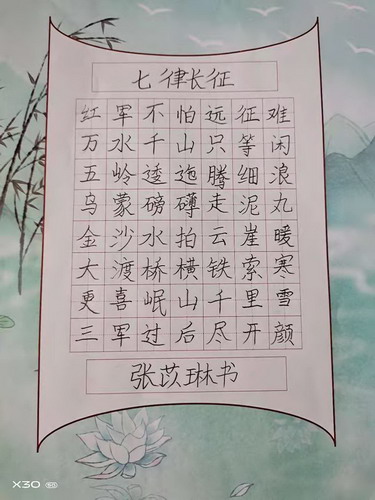 七律长征
红军不怕远征难
万水千山只等闲
五岭逶迤腾细浪
乌蒙磅礴走泥丸
金沙水拍云崖暖
大渡桥横铁索寒
更喜岷山千里雪
三军过后尽开颜
张苡琳书
X30 5G